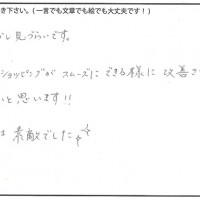 き下さい。(一言でも文章でも絵でも大丈夫です!)
し見づらいです。
ショッピングがスムーズにできる様に改善さ
いと思います!!
は素敵でした